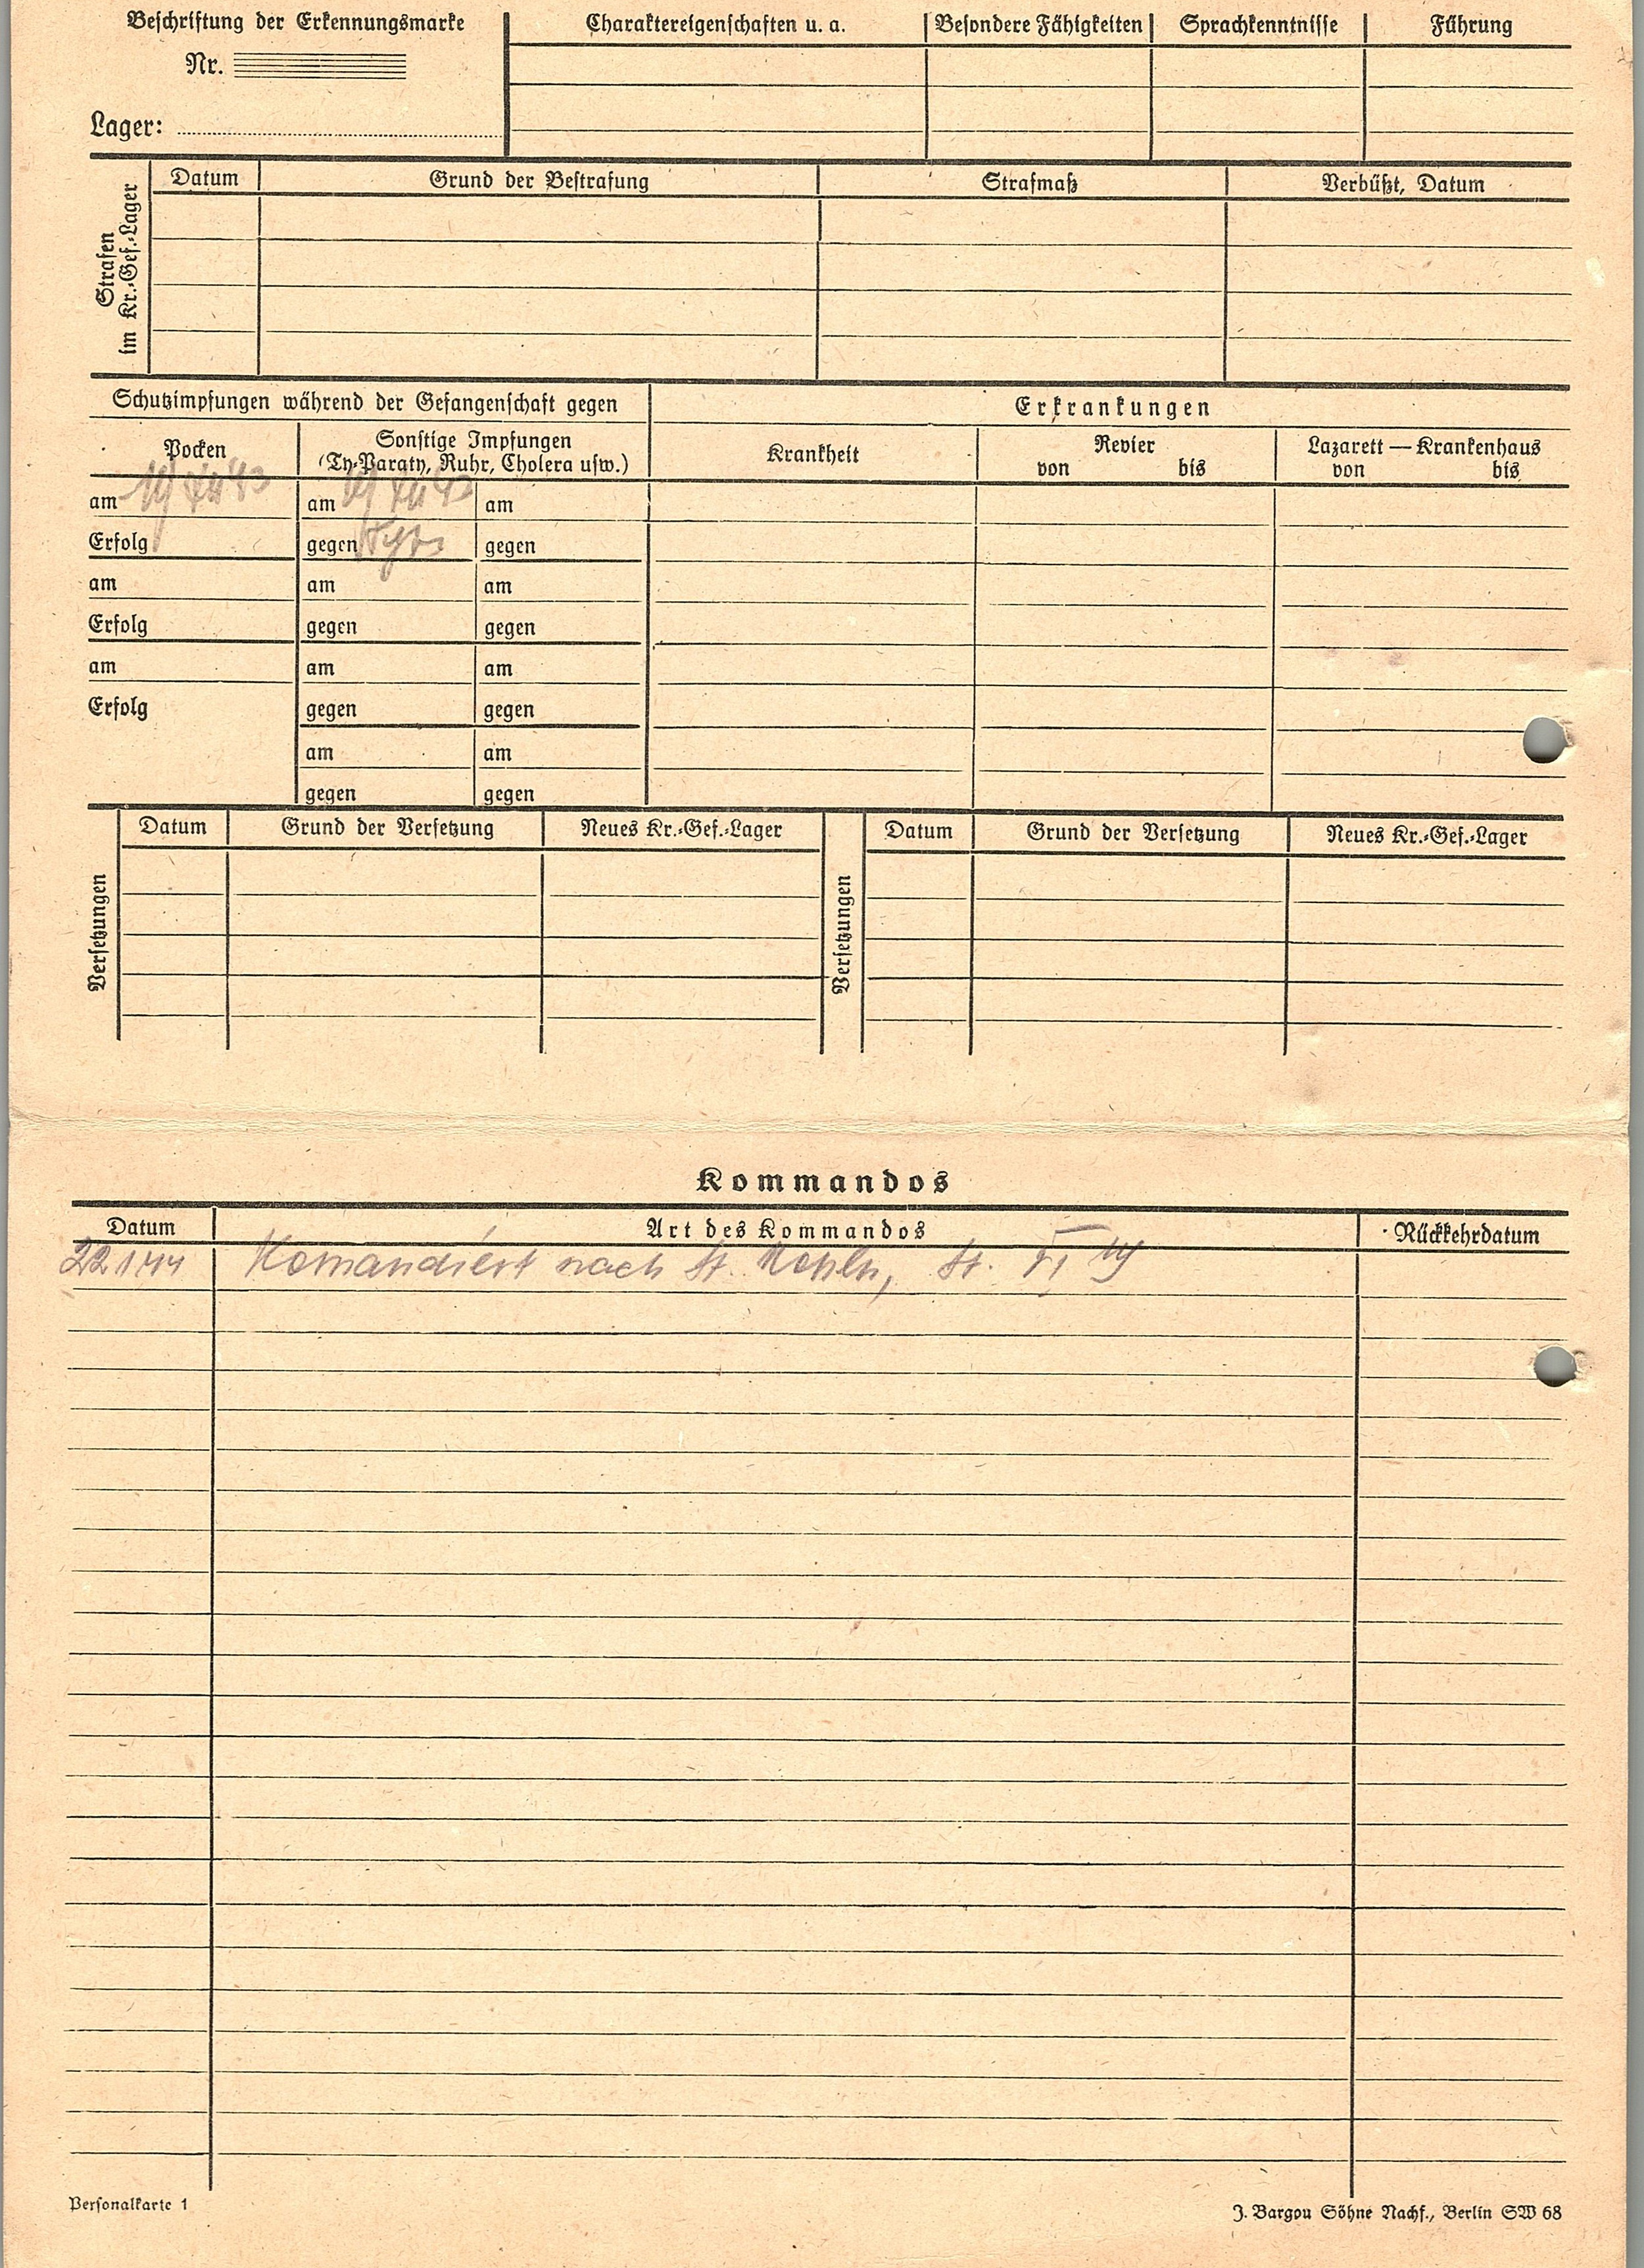 Beschriftung der Erkennungsmarke
Nr.
Lager:
Charaktereigenschaften u. a. Besondere Fähigkeiten Sprachkenntnisse Führung
Strafen
im Kr.-Gef.-Lager
Datum Grund der Bestrafung Strafmaß Verbüßt, Datum
Schutzimpfungen während der Gefangenschaft gegen
Erkrankungen
Pocken
Sonstige Impfungen
(Ty-Paraty, Ruhr, Cholera usw.)
Krankheit
Revier
von bis
Lazarett — Krankenhaus
von bis
am am am
Erfolg gegen gegen
am am am
Erfolg gegen gegen
am am am
Erfolg gegen gegen
am am
gegen gegen
Versetzungen
Datum Grund der Versetzung Neues Kr.-Gef.-Lager
Versetzungen
Datum Grund der Versetzung Neues Kr.-Gef.-Lager
Kommandos
Datum Art des Kommandos Rückkehrdatum
22 1 44 Komandiert nach St.
Personalkarte 1
J. Bargou Söhne Nachf., Berlin SW 68